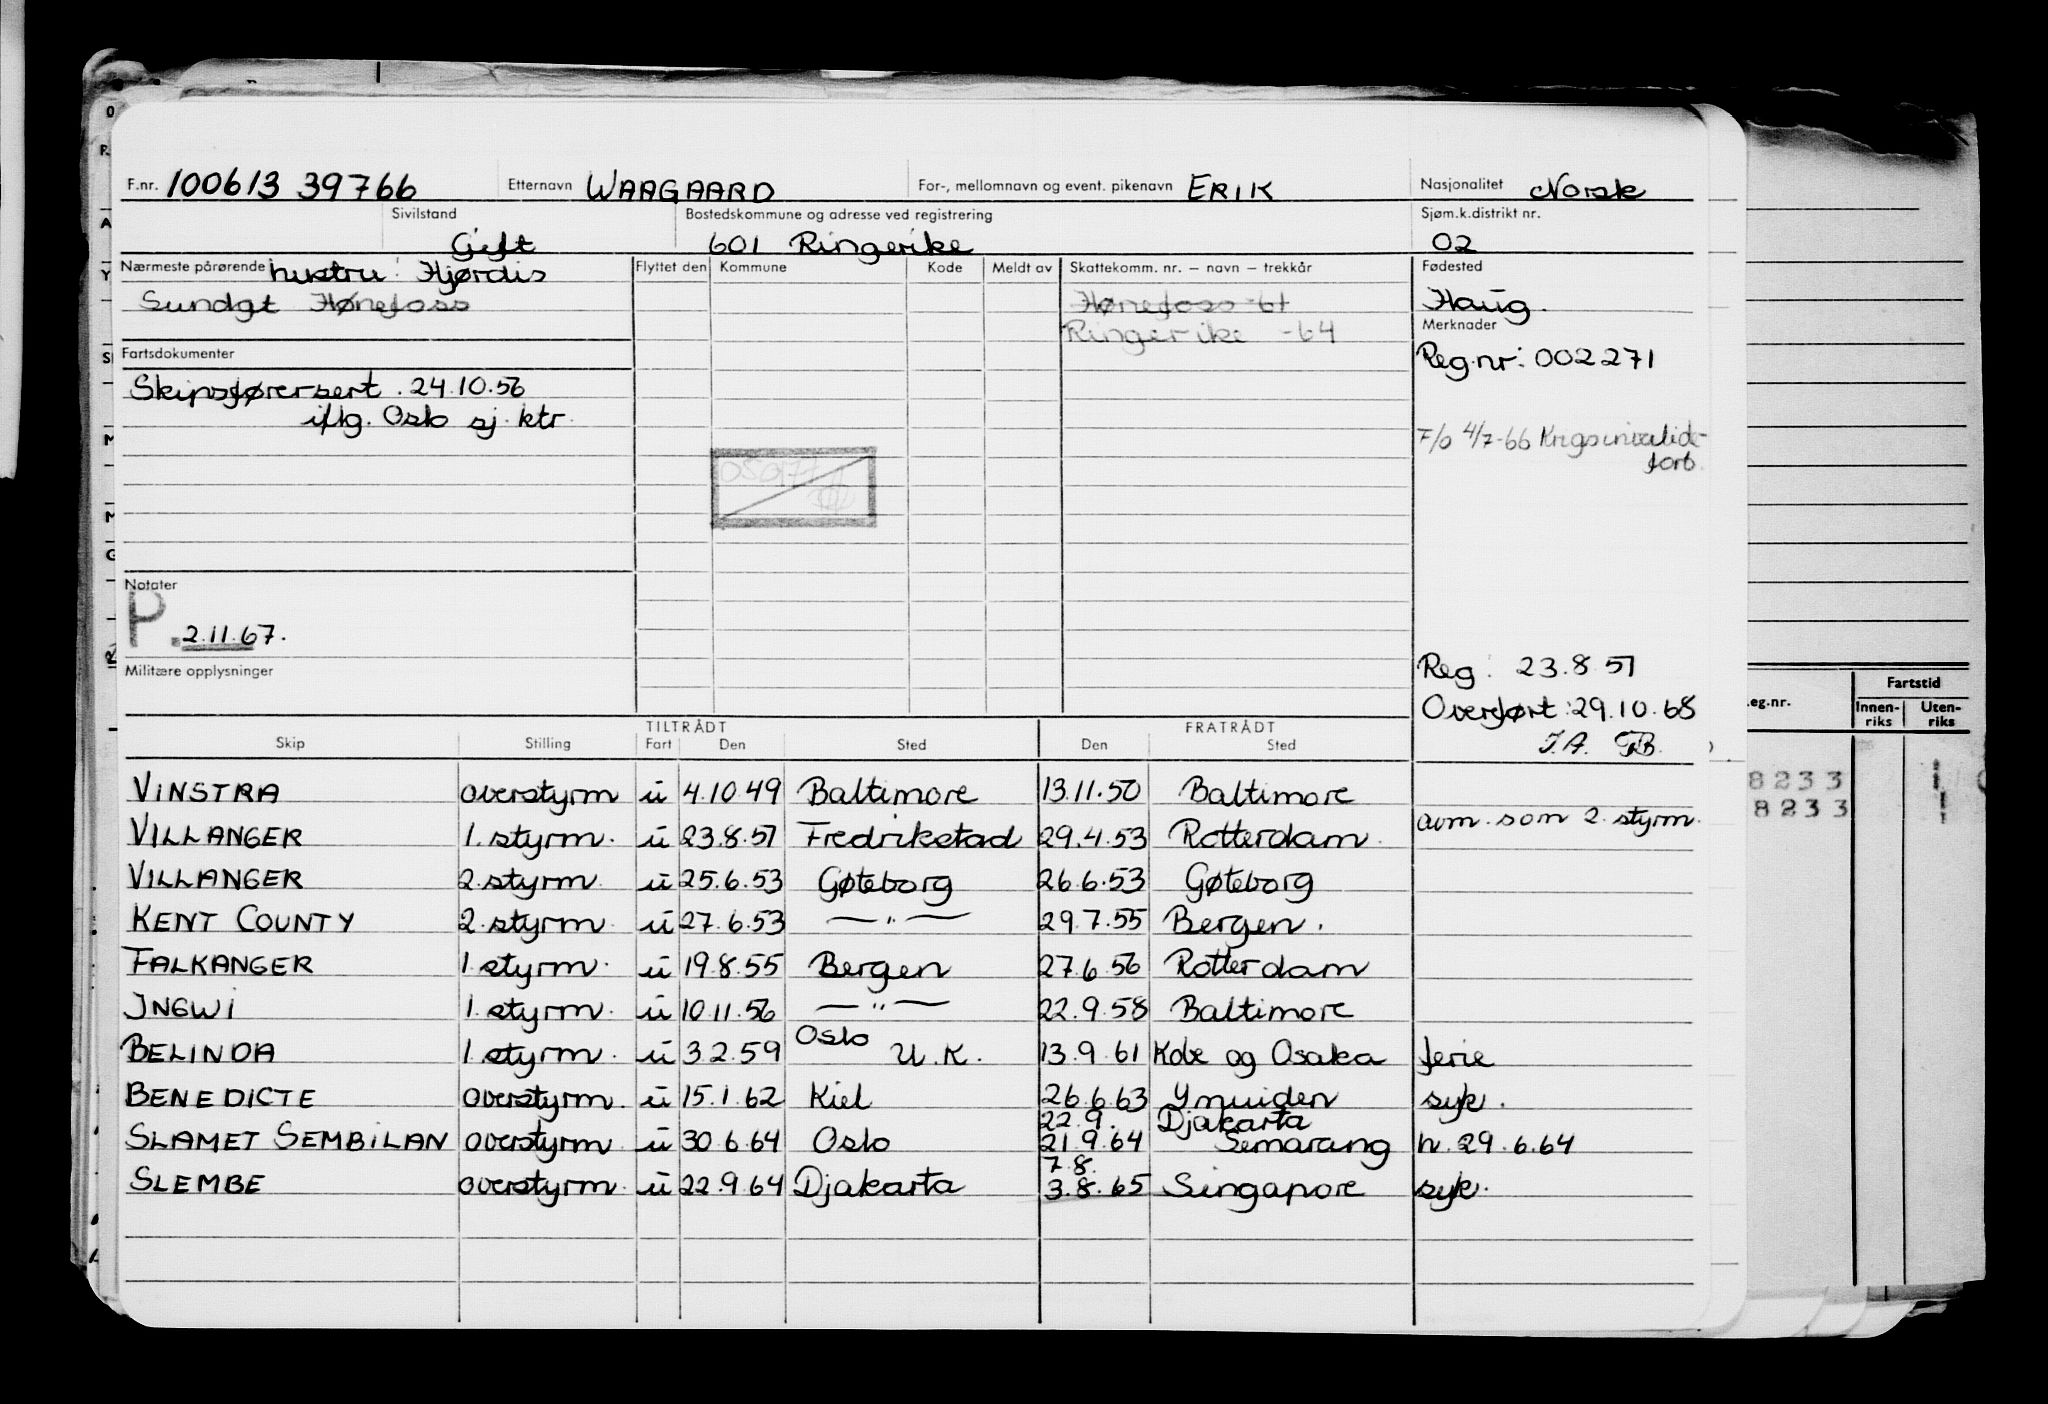 F.nr. 100613 39766 Etternavn WAAGAARD For-, mellomnavn og event. pikenavn ERIK Nasjonalitet Norsk
Sivilstand Bostedskommune og adresse ved registrering Sjøm.k.distrikt nr.
Gift 601 Ringerike 02
Nærmeste pårørende hustru: Hjørdis Flyttet den Kommune Kode Meldt av Skattekomm. nr. – navn – trekkår Fødested
Sundgt Hønefoss Hønefoss -61 Haug.
Ringerike -64 Merknader
Fartsdokumenter Reg.nr: 002271
Skipsførersert. 24.10.56
iflg. Oslo sj. ktr.
F/o 4/7-66 Krigsinvalide-
forb.
Notater
P. 2.11.67.
Militære opplysninger
Reg: 23.8.51
Overført: 29.10.68
TILTRÅDT FRATRÅDT
Skip Stilling Fart Den Sted Den Sted
VINSTRA overstyrm u 4.10.49 Baltimore 13.11.50 Baltimore
VILLANGER 1. styrm. u 23.8.51 Fredrikstad 29.4.53 Rotterdam. avm. som 2. styrm.
VILLANGER 2. styrm. u 25.6.53 Gøteborg 26.6.53 Gøteborg
KENT COUNTY 2. styrm. u 27.6.53 —"— 29.7.55 Bergen.
FALKANGER 1. styrm. u 19.8.55 Bergen 27.6.56 Rotterdam
INGWI 1. styrm. u 10.11.56 —"— 22.9.58 Baltimore
BELINDA 1. styrm. u 3.2.59 Oslo U.K. 13.9.61 Kobe og Osaka ferie
BENEDICTE overstyrm. u 15.1.62 Kiel 26.6.63 Ymuiden syk.
22.9. Djakarta
SLAMET SEMBILAN overstyrm u 30.6.64 Oslo 21.9.64 Semarang h. 29.6.64
7.8.
SLEMBE overstyrm. u 22.9.64 Djakarta 3.8.65 Singapore syk.
eg.nr. Fartstid
Innen-
riks
Uten-
riks
8233
8233